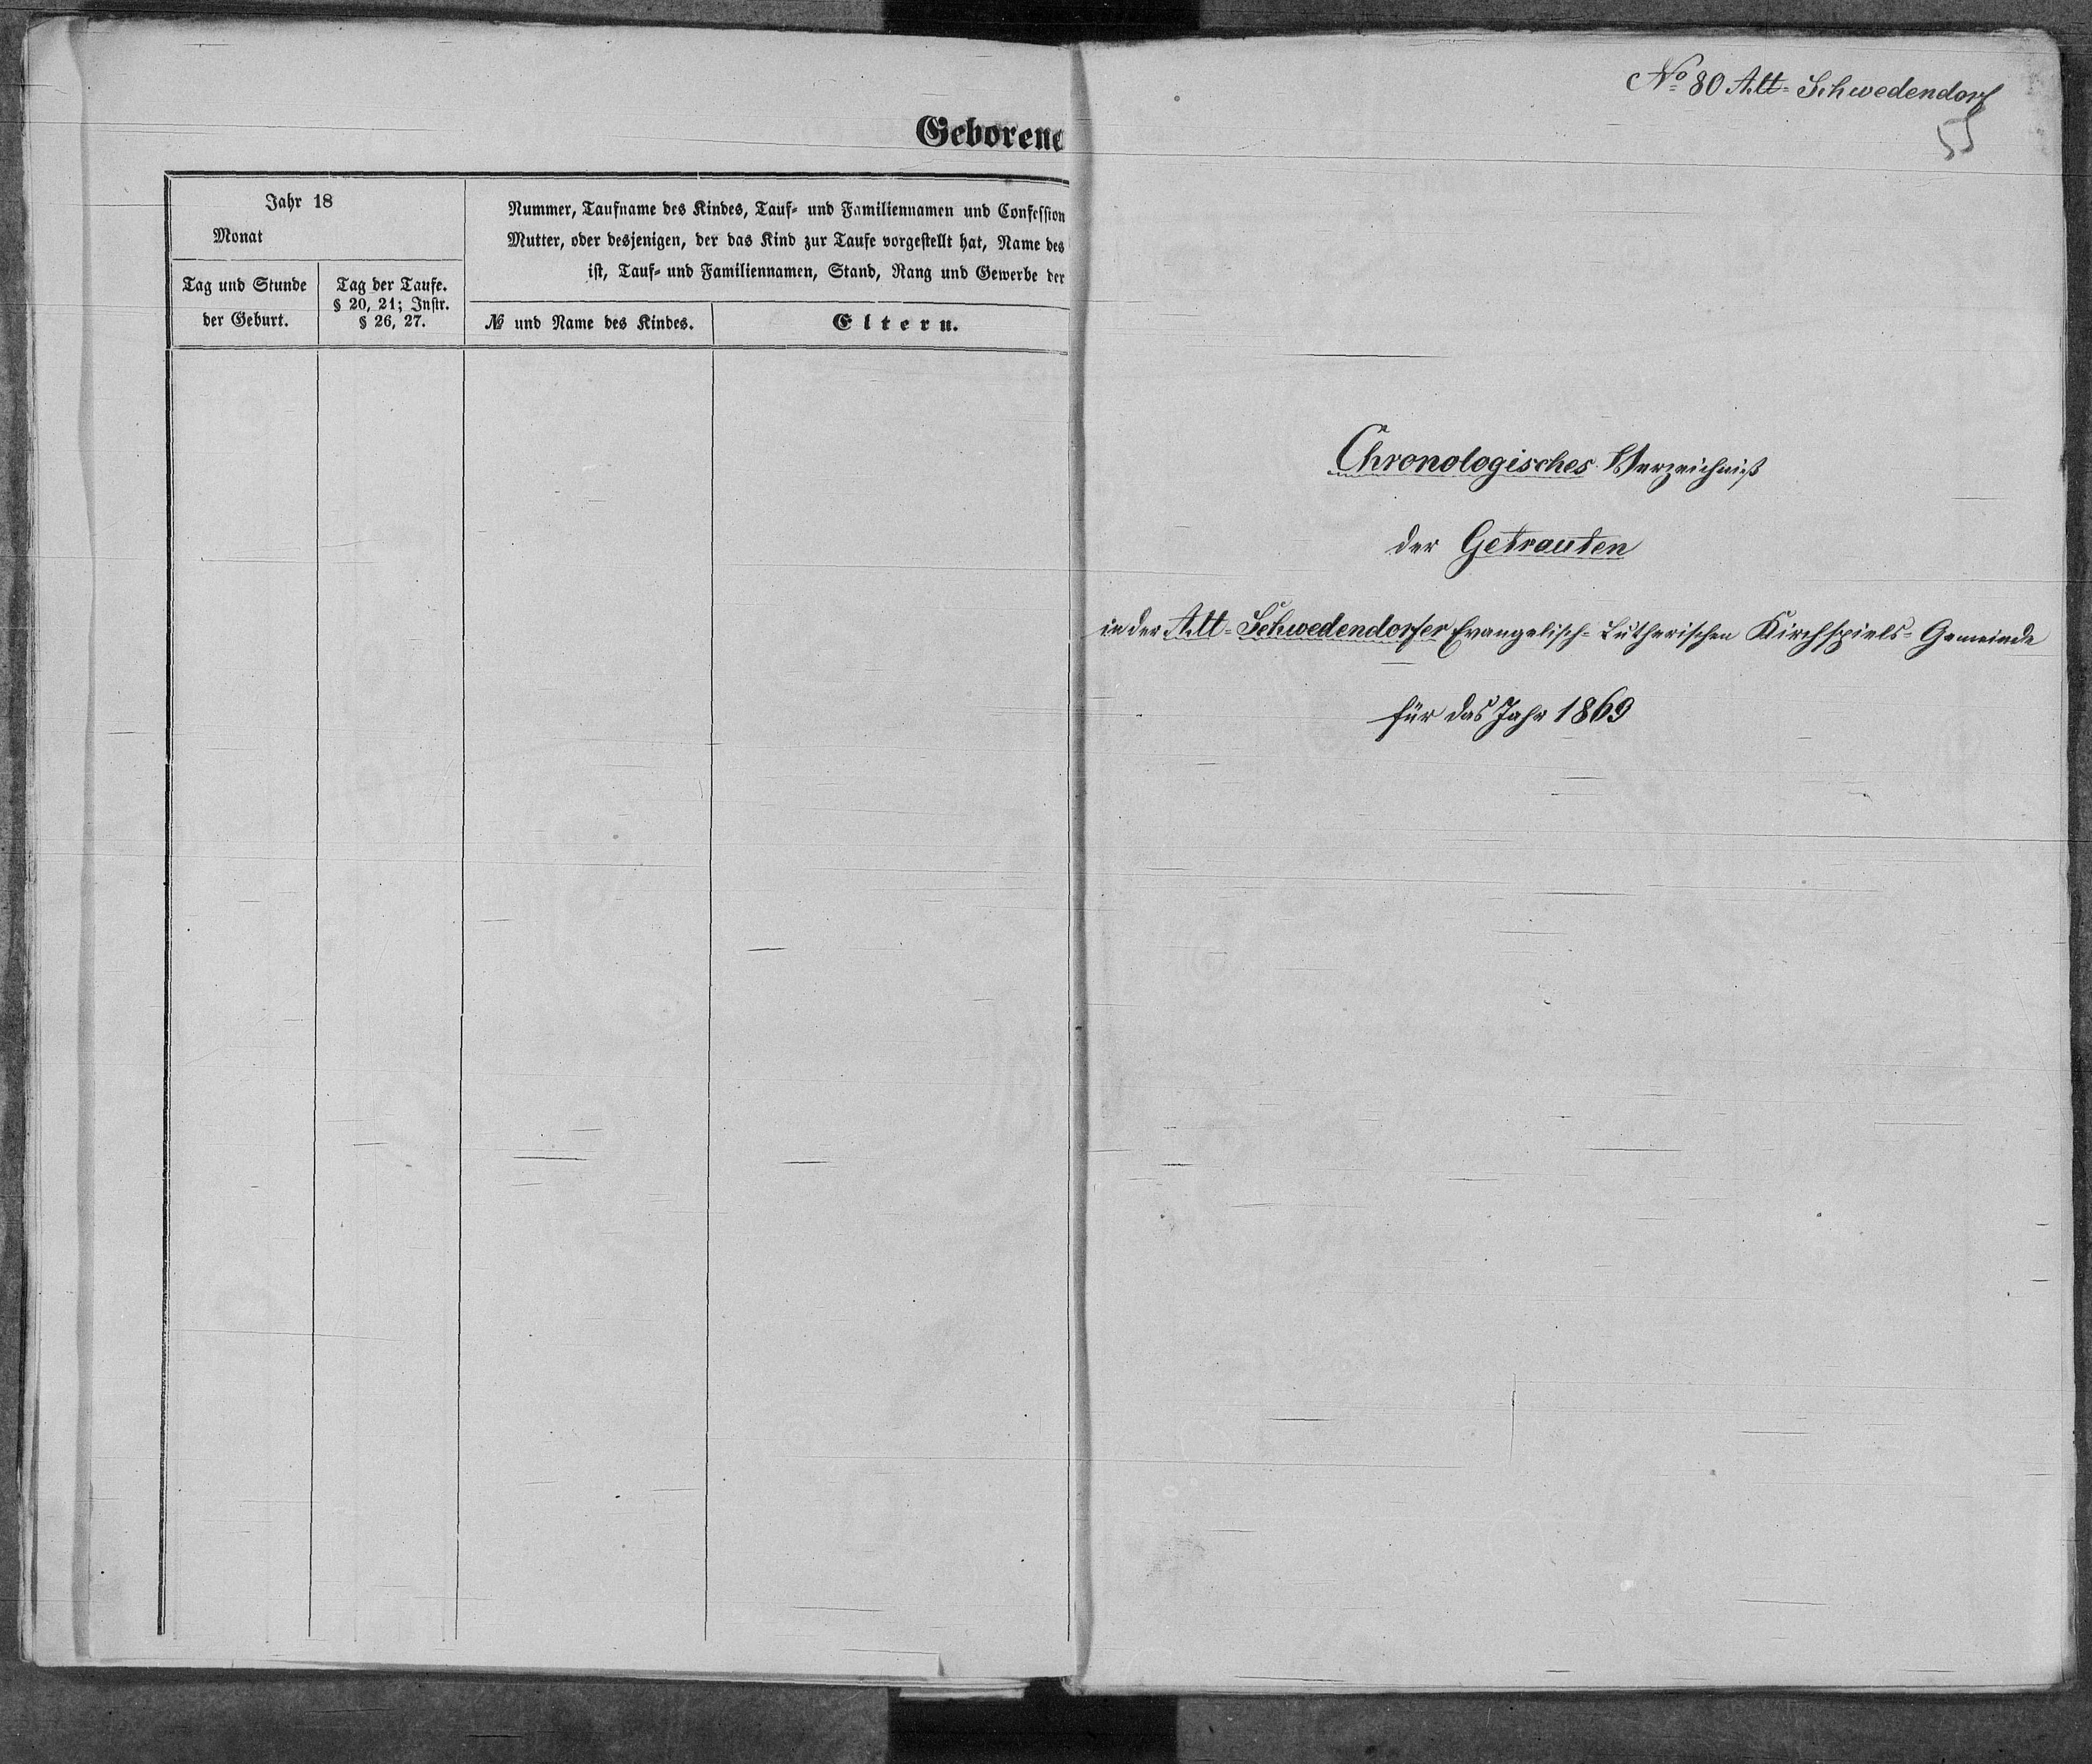 Geborene
Jahr 18
Monat
Tag und Stunde
der Geburt.
Tag der Taufe.
§ 20, 21; Instr.
§ 26, 27.
Nummer, Taufname des Kindes, Tauf- und Familiennamen und Confession
Mutter, oder desjenigen, der das Kind zur Taufe vorgestellt hat, Name des
ist, Tauf- und Familiennamen, Stand, Rang und Gewerbe der
№ und Name des Kindes.
Eltern.
No 80 Alt-Schwedendorf
55
Chronologisches Verzeichniß
der Getrauten
in der Alt-Schwedendorfer Evangelisch-Lutherischen Kirchspiels-Gemeinde
für das Jahr 1869